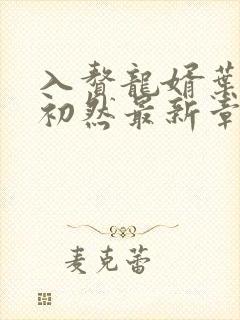 入贅龍婿葉
初然最新章
麦克蕾